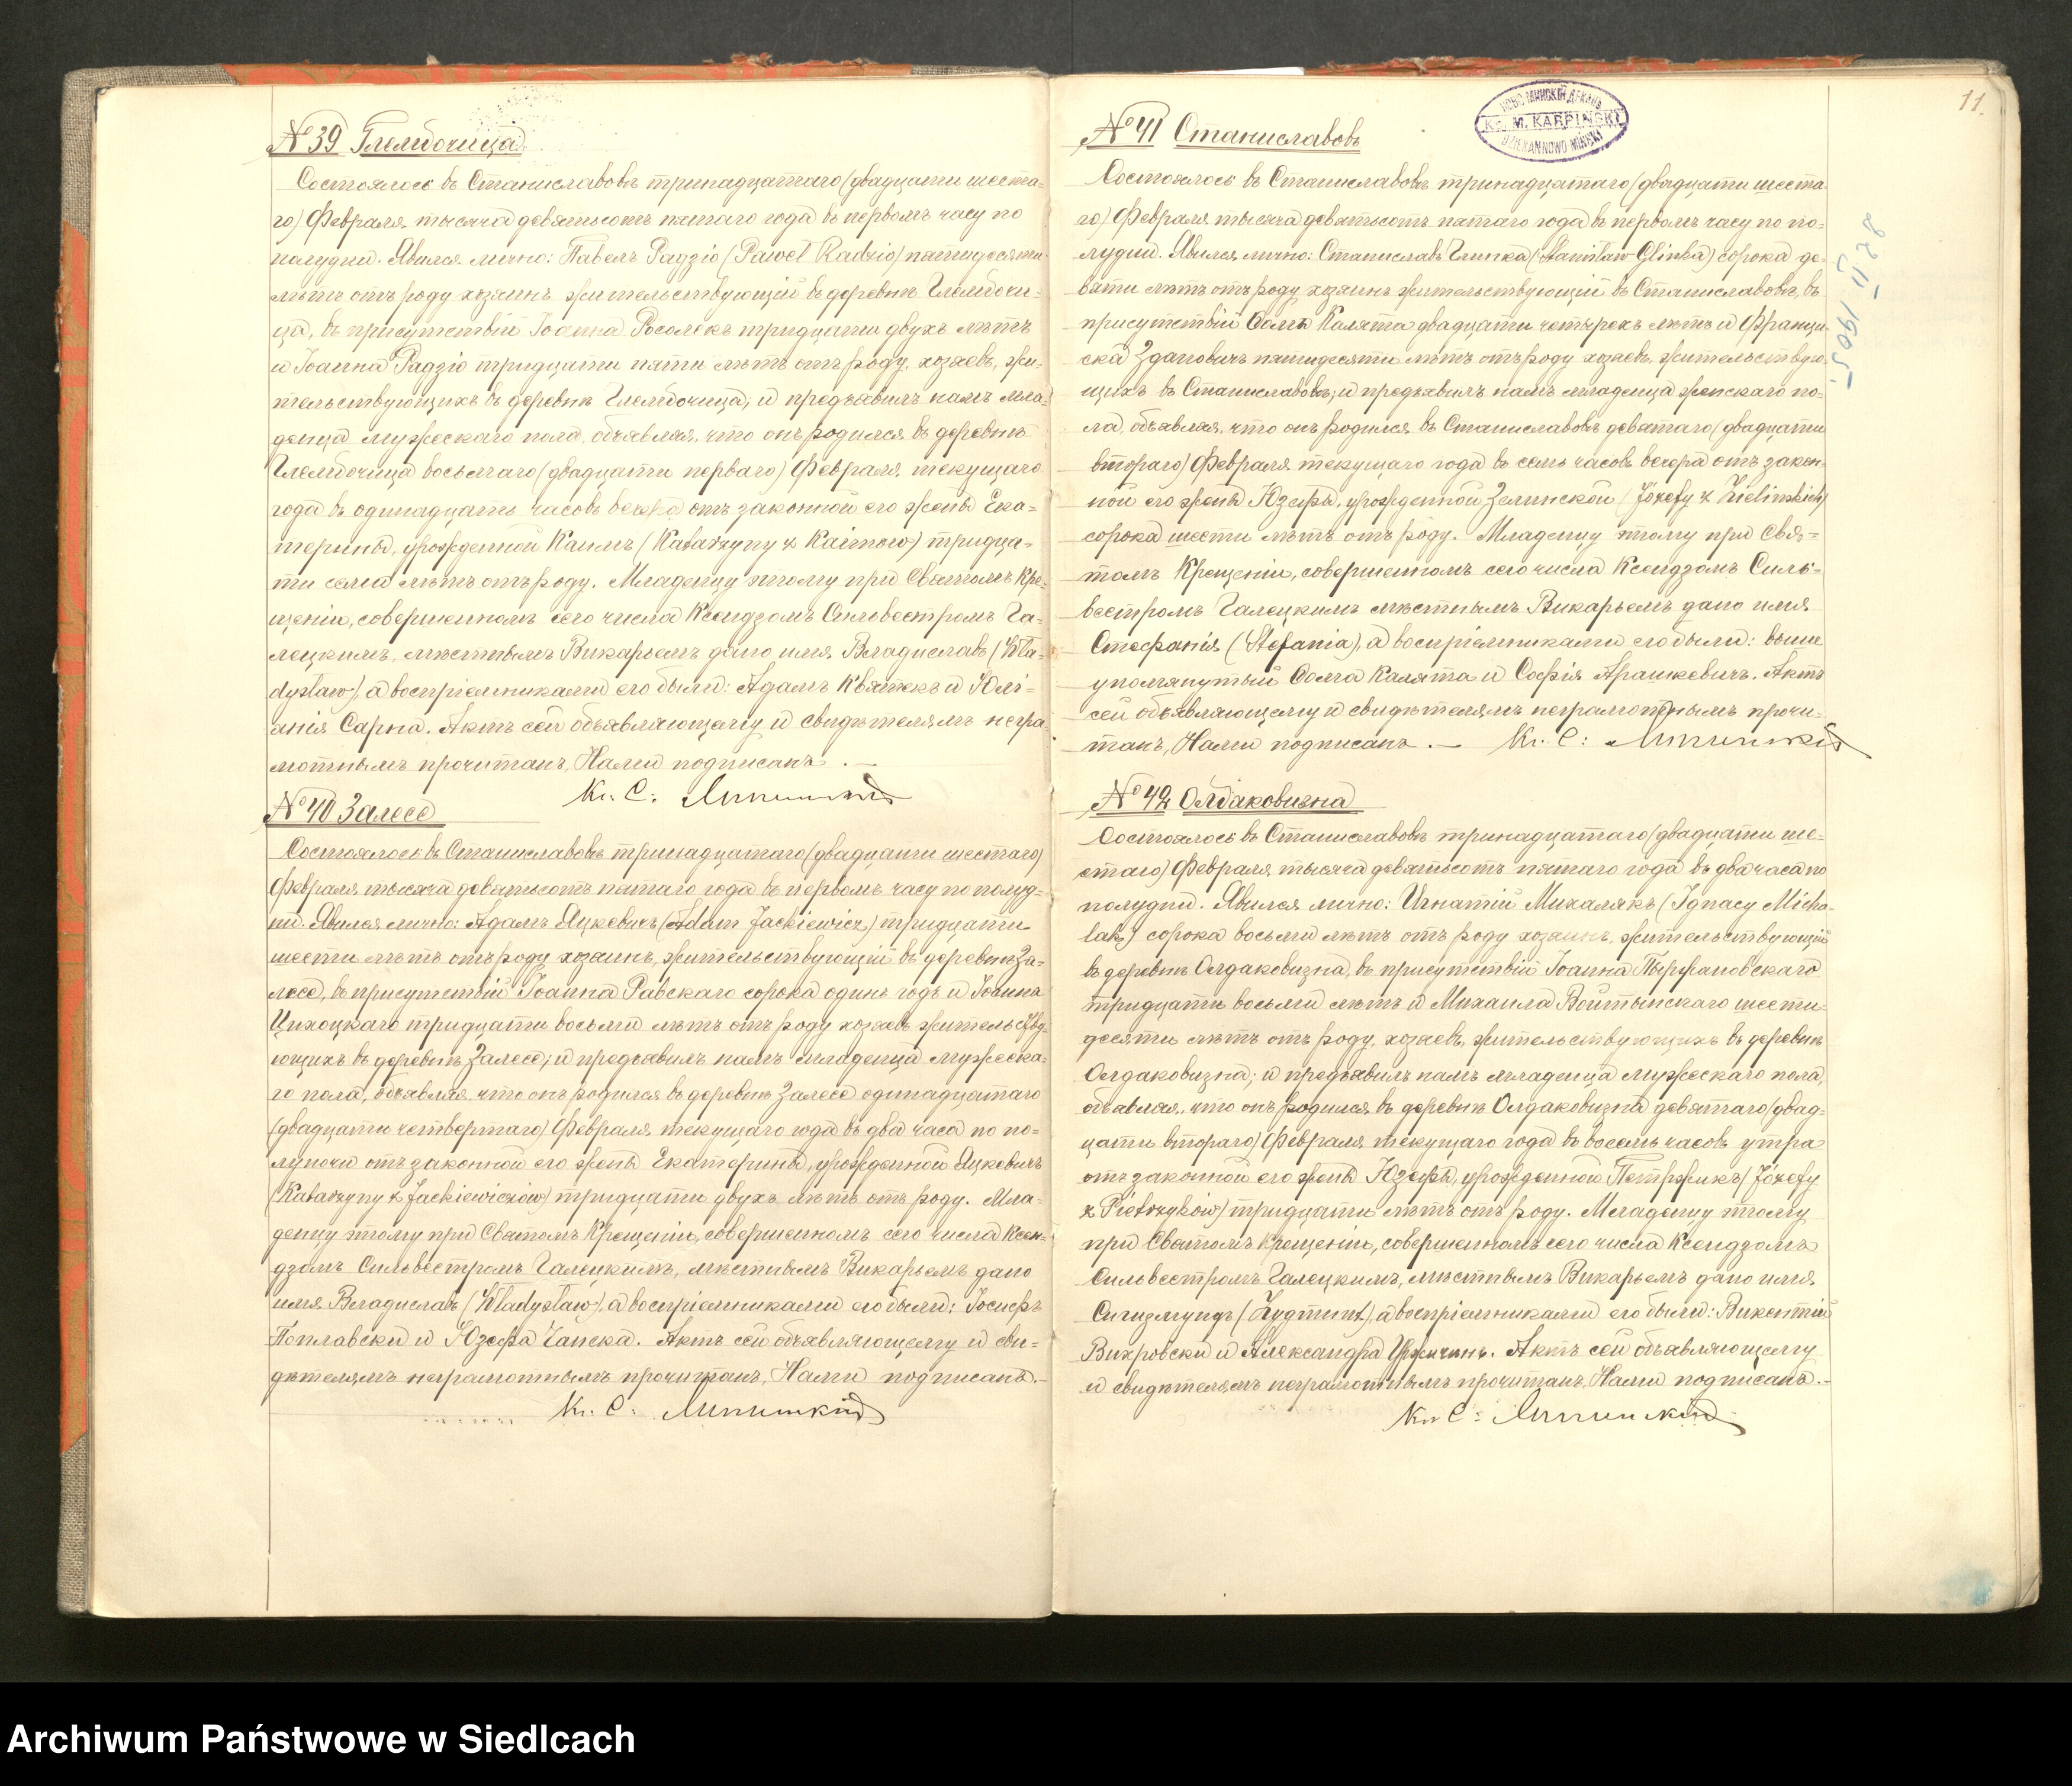 № 39 Глембочица
Состоялось въ Станиславовѣ тринадцатаго (двадцати шеста-
го) Февраля тысяча девятьсотъ пятаго года въ первомъ часу по
полудни. Явился лично: Павелъ Радзіо (Paweł Radzio) пятидесяти
лѣтъ отъ роду хозяинъ жительствующій въ деревнѣ Глембочи-
ца, въ присутствіи Іоанна Росолекъ тридцати двухъ лѣтъ
и Іоанна Радзіо тридцати пяти лѣтъ отъ роду, хозяевъ, жи-
тельствующихъ въ деревнѣ Глембочица, и предъявилъ намъ мла-
денца мужескаго пола, объявляя, что онъ родился въ деревнѣ
Глембочица восьмаго (двадцати перваго) Февраля текущаго
года въ одинадцать часовъ вечера отъ законной его жены Ека-
терины, урожденной Каимъ (Katarzyny z Kaimow) тридца-
ти семи лѣтъ отъ роду. Младенцу этому при Святомъ Кре-
щеніи, совершенномъ сего числа Ксендзомъ Сильвестромъ Га-
лецкимъ, мѣстнымъ Викарьемъ дано имя Владиславъ (Wła-
dysław), а воспріемниками его были: Адамъ Квятекъ и Юлі-
анія Сарна. Актъ сей объявляющему и свидѣтелямъ негра-
мотнымъ прочитанъ, Нами подписанъ. —
Кс. С:
№ 40 Залесе
Состоялось въ Станиславовѣ тринадцатаго (двадцати шестаго)
Февраля тысяча девятьсотъ пятаго года въ первомъ часу по полуд-
ни. Явился лично: Адамъ Яцкевичъ (Adam Jackiewicz) тридцати
шести лѣтъ отъ роду хозяинъ, жительствующій въ деревнѣ За-
лесе, въ присутствіи Іоанна Равскаго сорока одинъ годъ и Іоанна
Цихоцкаго тридцати восьми лѣтъ отъ роду хозяевъ жительству-
ющихъ въ деревнѣ Залесе; и предъявилъ намъ младенца мужеска-
го пола, объявляя, что онъ родился въ деревнѣ Залесе одинадцатаго
(двадцати четвертаго) Февраля текущаго года въ два часа по по-
луночи отъ законной его жены Екатерины, урожденной Яцкевичъ
(Katarzyny z Jackiewiczów) тридцати двухъ лѣтъ отъ роду. Мла-
денцу этому при Святомъ Крещеніи, совершенномъ сего числа Ксен-
дзомъ Сильвестромъ Галецкимъ, мѣстнымъ Викарьемъ дано
имя Владиславъ (Władysław), а воспріемниками его были: Іосифъ
Поплавски и Юзефа Чапска. Актъ сей объявляющему и сви-
дѣтелямъ неграмотнымъ прочитанъ, Нами подписанъ. —
Кс. С:
11.
НОВО МИНСКІЙ ДЕКАНЪ
Ks. M. KARPIŃSKI
DZIEKAN NOWO MIŃSKI
№ 41 Станиславовъ
Состоялось въ Станиславовѣ тринадцатаго (двадцати шеста-
го) Февраля тысяча девятьсотъ пятаго года въ первомъ часу по по-
лудни. Явился лично: Станиславъ Глинка (Stanisław Glinka) сорока де-
вяти лѣтъ отъ роду хозяинъ жительствующій въ Станиславовѣ, въ
присутствіи Ѳомы Калята двадцати четырехъ лѣтъ и Франци-
ска Здановичъ пятидесяти лѣтъ отъ роду хозяевъ, жительствую-
щихъ въ Станиславовѣ; и предъявилъ намъ младенца женскаго по-
ла, объявляя, что онъ родился въ Станиславовѣ девятаго (двадцати
втораго) Февраля текущаго года въ семь часовъ вечера отъ закон-
ной его жены Юзефы, урожденной Зелинской (Józefy z Zielinskich)
сорока шести лѣтъ отъ роду. Младенцу этому при Свя-
томъ Крещеніи, совершенномъ сего числа Ксендзомъ Силь-
вестромъ Галецкимъ мѣстнымъ Викарьемъ дано имя
Стефанія (Stefania), а воспріемниками его были: выше
упомянутый Ѳома Калята и Софія Арашкевичъ. Актъ
сей объявляющему и свидѣтелямъ неграмотнымъ прочи-
танъ, Нами подписанъ. — Кс. С:
22 II 1905
№ 42 Олдаковизна
Состоялось въ Станиславовѣ тринадцатаго (двадцати ше-
стаго) Февраля тысяча девятьсотъ пятаго года въ два часа по
полудни. Явился лично: Игнатій Михалякъ (Ignacy Micha-
lak) сорока восьми лѣтъ отъ роду хозяинъ, жительствующій
въ деревнѣ Олдаковизна, въ присутствіи Іоанна Пыржановскаго
тридцати восьми лѣтъ и Михаила Войтынскаго шести-
десяти лѣтъ отъ роду, хозяевъ, жительствующихъ въ деревнѣ
Олдаковизна; и предъявилъ намъ младенца мужескаго пола,
объявляя, что онъ родился въ деревнѣ Олдаковизна девятаго (двад-
цати втораго) Февраля текущаго года въ восемь часовъ утра
отъ законной его жены Юзефы, урожденной Петржикъ (Józefy
z Pietrzyków) тридцати лѣтъ отъ роду. Младенцу этому
при Святомъ Крещеніи, совершенномъ сего числа Ксендзомъ
Сильвестромъ Галецкимъ, мѣстнымъ Викарьемъ дано имя
Сигизмундъ (Zygmunt), а воспріемниками его были: Викентій
Вихровски и Александра Актъ сей объявляющему
и свидѣтелямъ неграмотнымъ прочитанъ, Нами подписанъ. —
Кс. С:
Archiwum Państwowe w Siedlcach